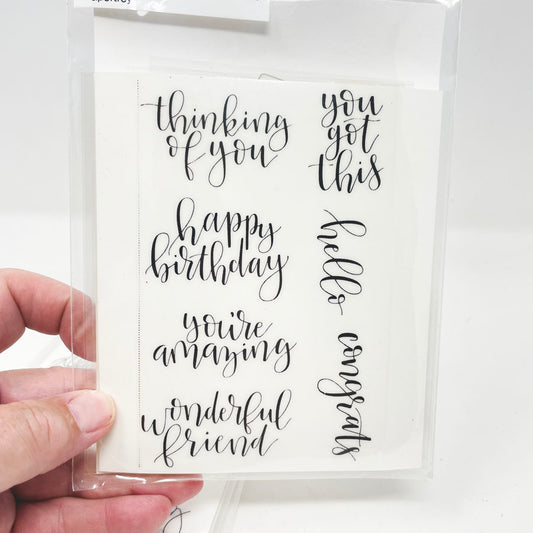 thinking
of you
happy
birthday
you're
amazing
wonderful
friend
you
got
this
hello
congrats